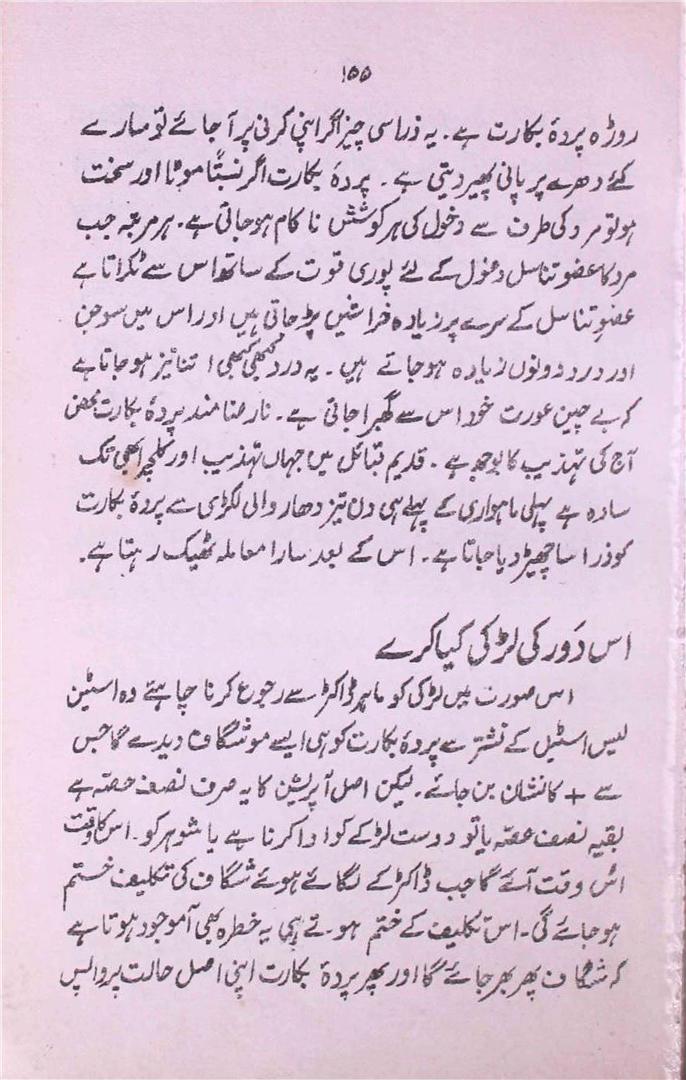 ۱۵۵
روڑہ پردۂ بکارت ہے۔ یہ ذرا سی چیز اگر اپنی کرنی پر آ جائے تو سارے
کئے دھرے پر پانی پھیر دیتی ہے۔ پردۂ بکارت اگر نسبتاً موٹا اور سخت
ہو تو مرد کی طرف سے دخول کی ہر کوشش ناکام ہو جاتی ہے۔ ہر مرتبہ جب
مرد کا عضو تناسل دخول کے لئے پوری قوت کے ساتھ اس سے ٹکراتا ہے
عضوِ تناسل کے سرے پر زیادہ خراشیں پڑ جاتی ہیں اور اس میں سوجن
اور درد دونوں زیادہ ہو جاتے ہیں۔ یہ درد کبھی کبھی اتنا تیز ہو جاتا ہے
کہ بے چین عورت خود اس سے گھبرا جاتی ہے۔ نارضامند پردۂ بکارت محض
آج کی تہذیب کا بوجھ ہے۔ قدیم قبائل میں جہاں تہذیب اور کلچر ابھی تک
سادہ ہے پہلی ماہواری کے پہلے ہی دن تیز دھار والی لکڑی سے پردۂ بکارت
کو ذرا سا چھیڑ دیا جاتا ہے۔ اس کے بعد سارا معاملہ ٹھیک رہتا ہے۔
اس دَور کی لڑکی کیا کرے
اس صورت میں لڑکی کو ماہر ڈاکٹر سے رجوع کرنا چاہئے وہ اسٹین
لیس اسٹیل کے نشتر سے پردۂ بکارت کو ہی ایسے مو شگاف دیدے گا جس
سے + کا نشان بن جائے۔ لیکن اصل آپریشن کا یہ صرف نصف حصّہ ہے
بقیہ نصف حصّہ یا تو دوست لڑکے کو ادا کرنا ہے یا شوہر کو۔ اس کا وقت
اس وقت آئے گا جب ڈاکٹر کے لگائے ہوئے شگاف کی تکلیف ختم
ہو جائے گی۔ اس تکلیف کے ختم ہوتے ہی یہ خطرہ بھی آموجود ہوتا ہے
کہ شگاف پھر بھر جائے گا اور پھر پردۂ بکارت اپنی اصل حالت پر واپس